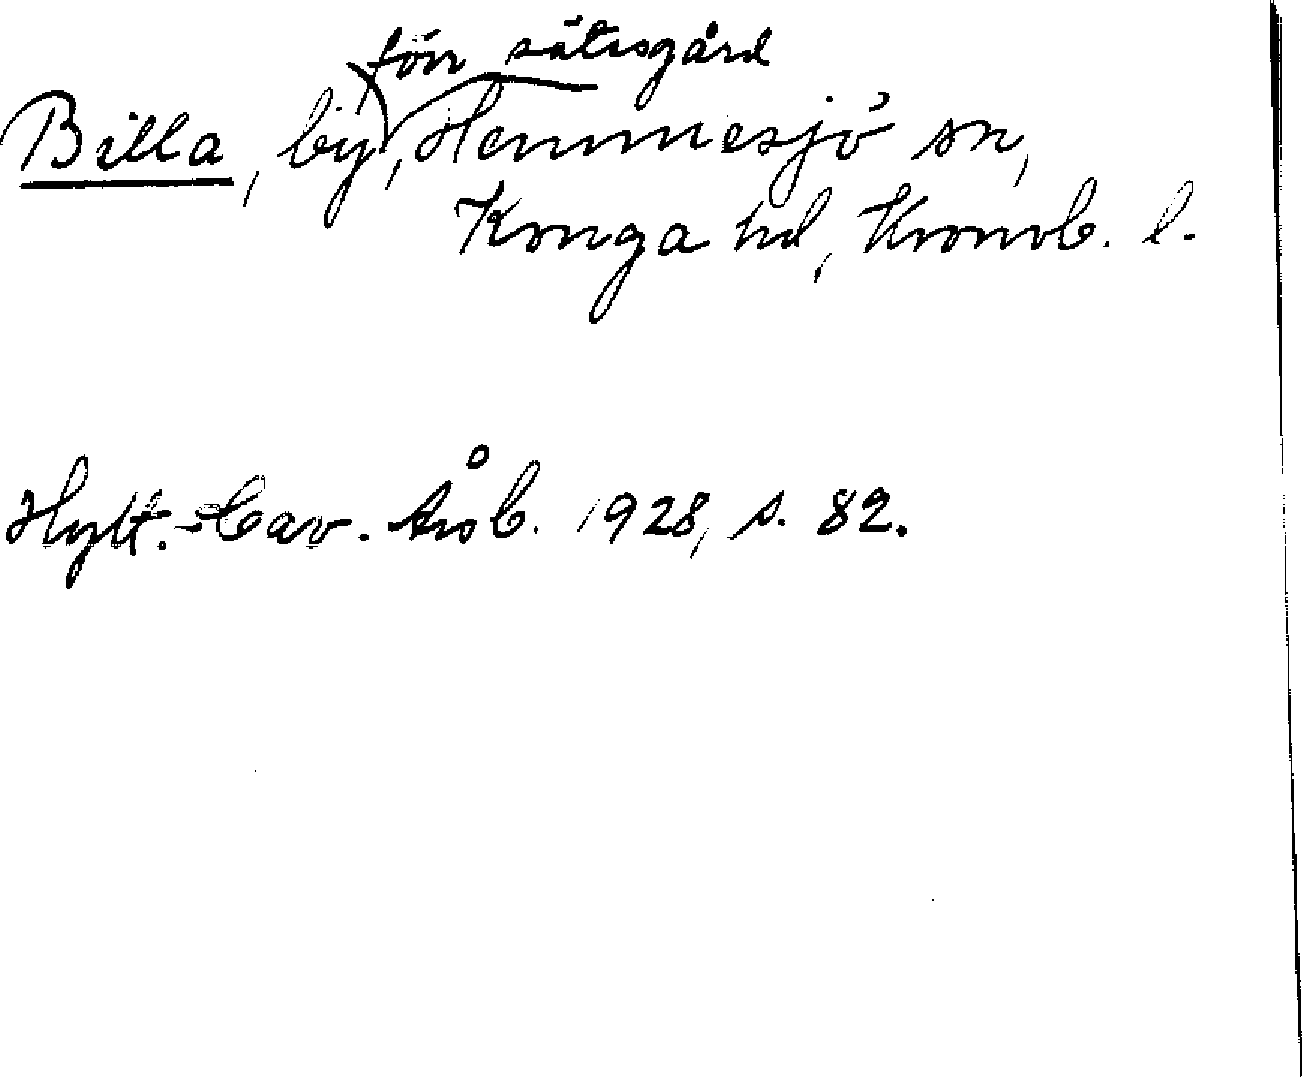 förr sätesgård
Billa, by, Hemmesjö sn,
Konga hd, Kronob. l.
Hylt.-Cav. Årsb. 1928, s. 82.